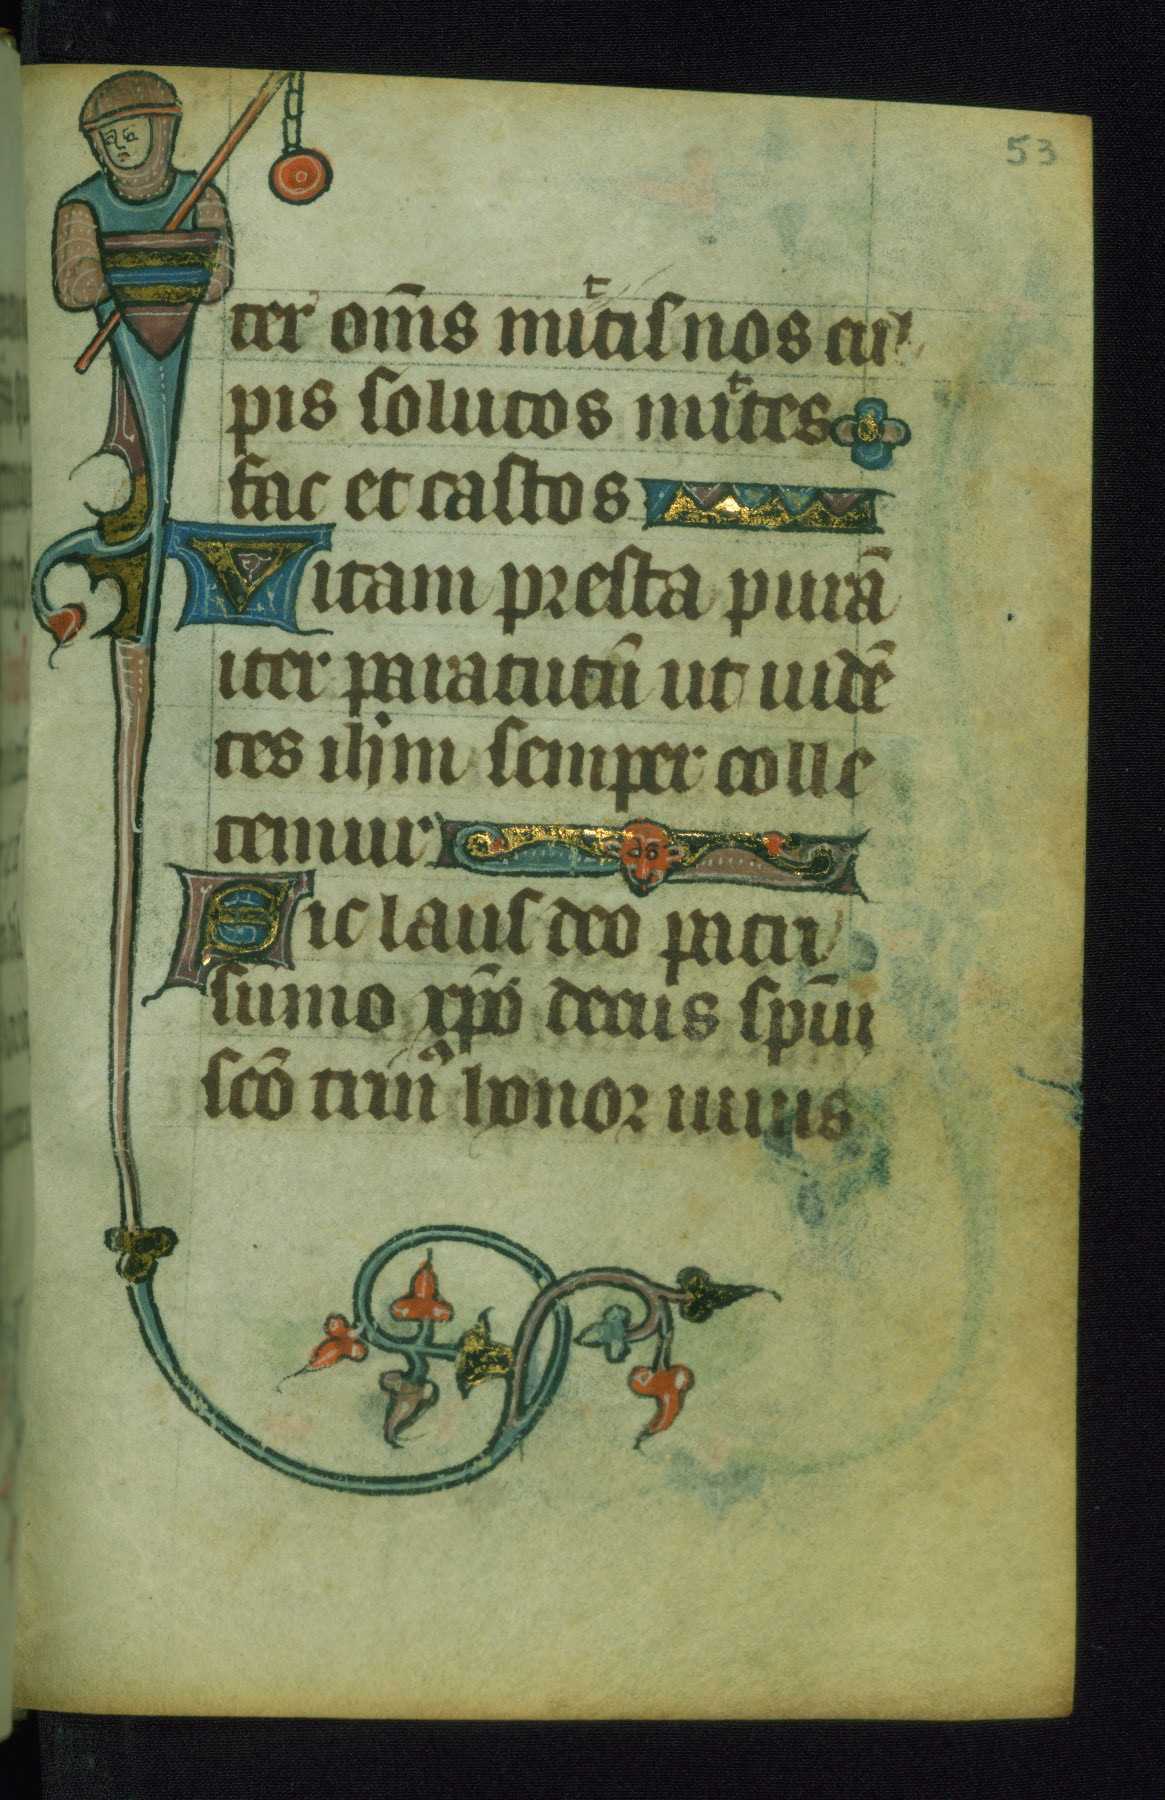 53
ter om̄s mitͭis nos cul
pis solutos mitͭes
fac et castos
Uitam presta purā
iter para tutū ut uidē
tes ih̄m semper colle
temur
Sic laus deo patri
sūmo xp̄o decus sp̄ui
scō trinꝰ honor unus